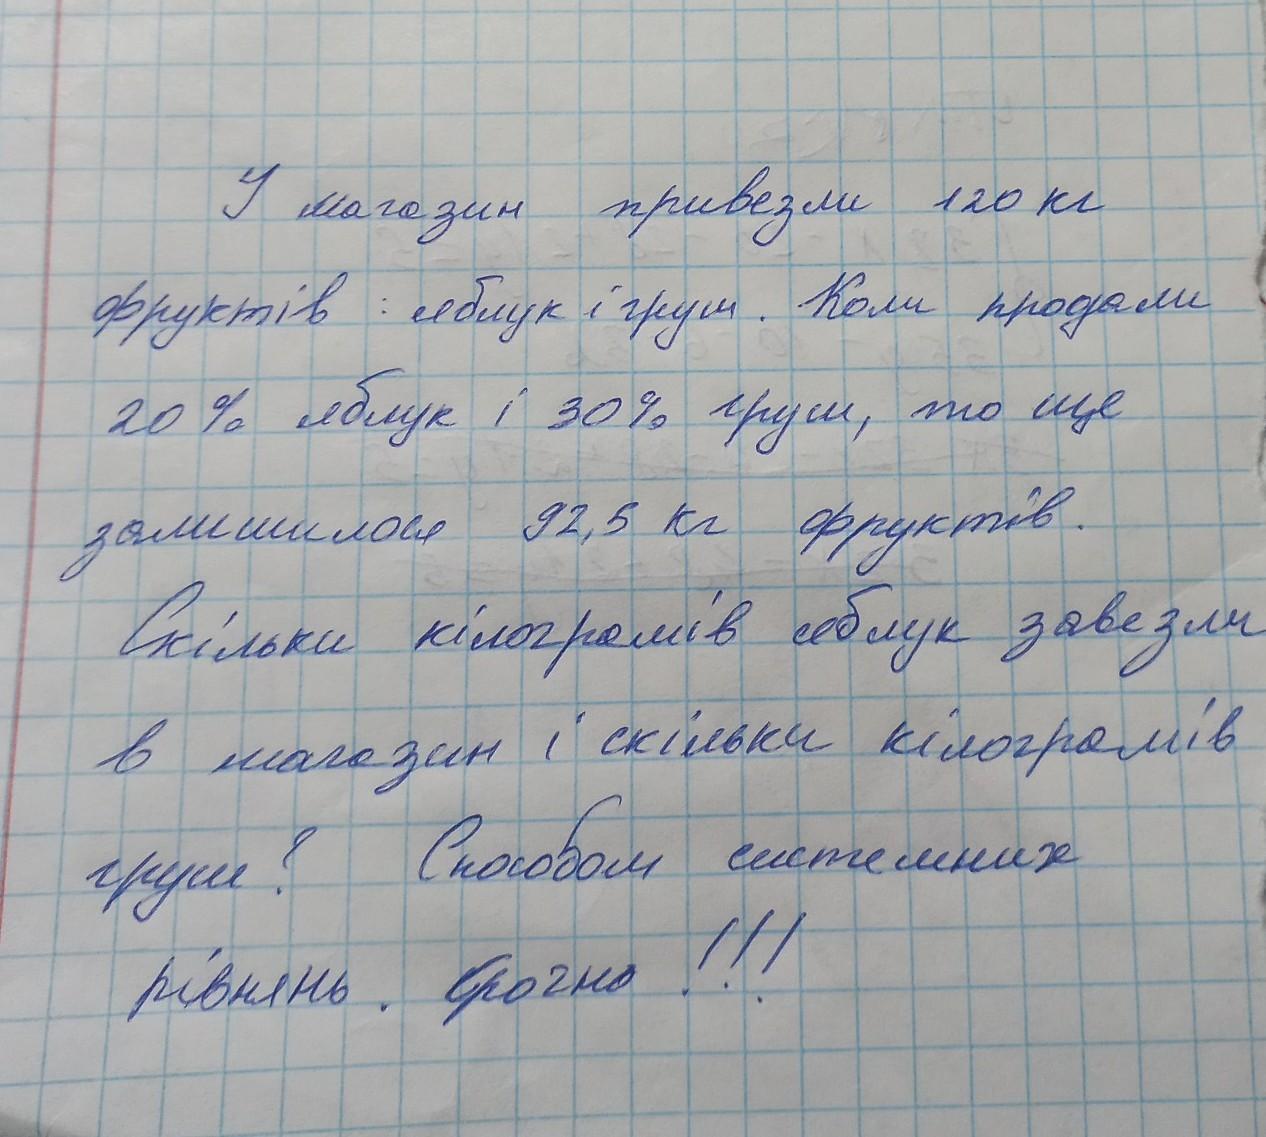 У магазин привезли 120 кг
фруктів : яблук і груш. Коли продали
20% яблук і 30% груш, то ще
залишилося 92,5 кг фруктів.
Скільки кілограмів яблук завезли
в магазин і скільки кілограмів
груш? Способом системних
рівнянь. Срочно !!!